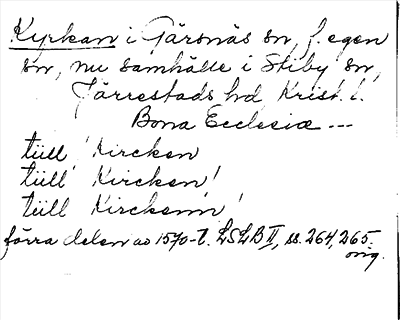 Kyrkan i Gärsnäs sn, f. egen
sn, nu samhälle i Stiby sn,
Järrestads hd Krist. l.
Bona Ecclesiæ ---
tüll Kircken
tüll Kircken!
tüll Kirckenn!
förra delen av 1570-t. LSLB II, ss. 264, 265.
orig.